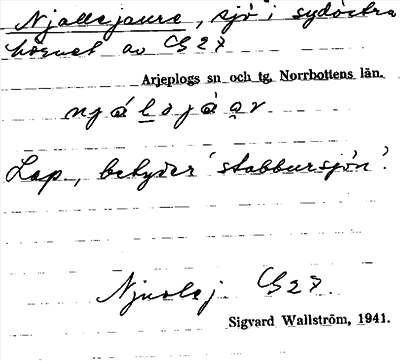 Njallejaure, sjö i sydöstra
hörnet av G 27
Arjeplogs sn och tg, Norrbottens län.
njálajáạv
Lap., betyder 'stabbursjön'.
G 27.
Sigvard Wallström, 1941.